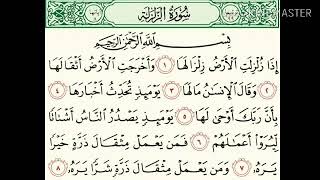 ASTER
سُورَةُ الزَّلْزَلَةِ
بِسْمِ اللَّهِ الرَّحْمَٰنِ الرَّحِيمِ
إِذَا زُلْزِلَتِ الْأَرْضُ زِلْزَالَهَا ١ وَأَخْرَجَتِ الْأَرْضُ أَثْقَالَهَا
٢ وَقَالَ الْإِنسَٰنُ مَالَهَا ٣ يَوْمَئِذٍ تُحَدِّثُ أَخْبَارَهَا ٤
بِأَنَّ رَبَّكَ أَوْحَىٰ لَهَا ٥ يَوْمَئِذٍ يَصْدُرُ النَّاسُ أَشْتَاتًا
لِّيُرَوْا أَعْمَٰلَهُمْ ٦ فَمَن يَعْمَلْ مِثْقَالَ ذَرَّةٍ خَيْرًا
يَرَهُ ٧ وَمَن يَعْمَلْ مِثْقَالَ ذَرَّةٍ شَرًّا يَرَهُ ٨